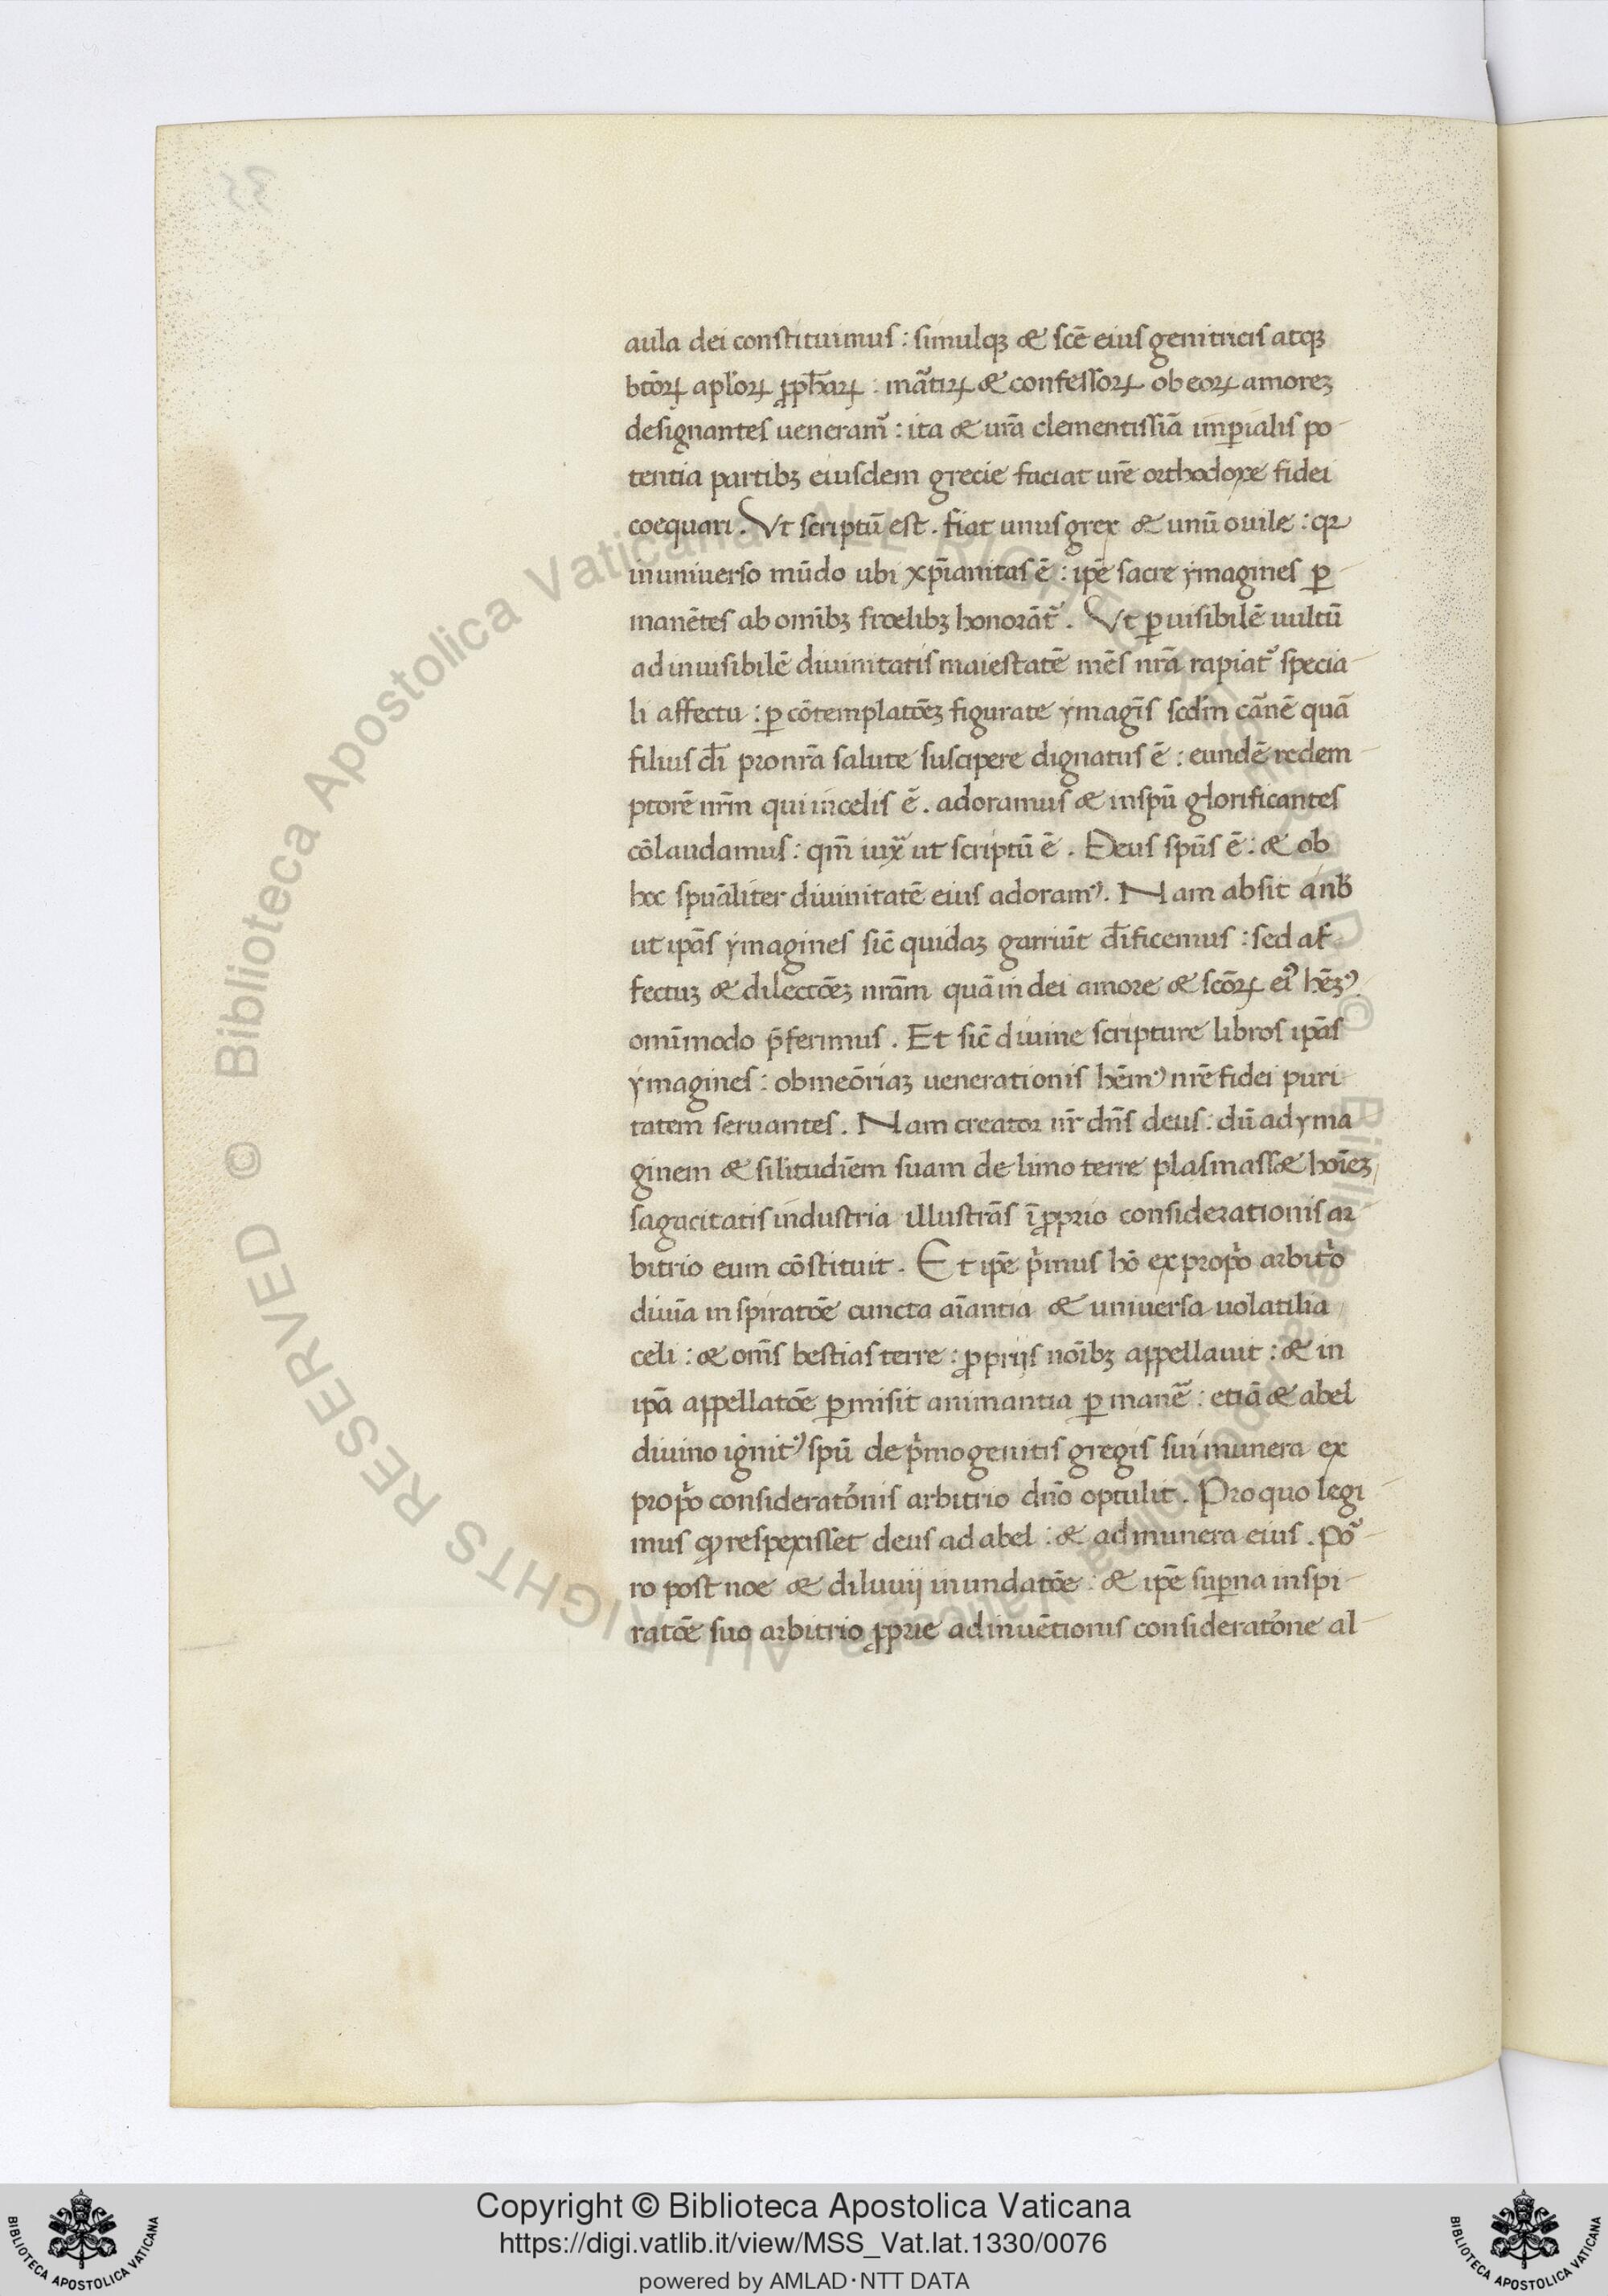 aula dei constituimus : simulqꝫ & scē eius genitricis atqꝫ
btōrꝝ aplorꝝ ꝓphārꝝ : mārtirꝝ & confessorꝝ ob eorꝝ amoreꝫ
designantes ueneramꝰ : ita & urā clementissiā imꝑialis po-
tentia partibꝫ eiusdem grecie faciat urē orthodoxe fidei
coequari . Vt scriptū est . fiat unus grex & unū ouile : qꝛ
in uniuerso mūdo ubi xp̄ianitas ē : ip̄e sacre ymagines ꝑ-
manētes ab omībꝫ fidelibꝫ honorāt᷑ . Vt ꝑ uisibilē uultū
ad inuisibilē diuinitatis maiestatē mēs nrā rapiat᷑ specia-
li affectu : ꝑ cōtemplatōeꝫ figurate ymagīs scdm̄ cārnē quā
filius dī pro nrā salute suscipere dignatus ē : eundē redem-
ptorē nrm̄ qui in celis ē . adoramus & in spū glorificantes
cōlaudamus : qm̄ iuxᷓ ut scriptū ē . Deus spūs ē : & ob
hoc spuāliter diuinitatē eius adoramꝰ . Nam absit a nb̄
ut ipās ymagines sic̄ quidaꝫ garriūt dīficemus : sed af-
fectuꝫ & dilectōeꝫ nrām quā in dei amore & scōrꝝ eiꝰ hēmꝰ
omīmodo p̄ferimus . Et sic̄ diuine scripture libros ipās
ymagines : ob meōriaꝫ uenerationis hēmꝰ nrē fidei puri-
tatem seruantes . Nam creator nr̄ dn̄s deus : dū ad yma
ginem & silitudīem suam de limo terre plasmass& hoīeꝫ
sagacitatis industria illustrās ī ꝓprio considerationis ar-
bitrio eum cōstituit . Et ip̄e pͥmus hō ex propͥo arbitͥo
diuīa inspiratōe cuncta aīantia & uniuersa uolatilia
celi : & om̄s bestias terre : ꝓprijs noībꝫ appellauit : & in
ipā appellatōe ꝑmisit animantia ꝑmanē᷑ : etiā & abel
diuino ignitꝰ spū de pͥmogenitis gregis sui munera ex
propͥo consideratōnis arbitrio dn̄o optulit . Pro quo legi-
mus ꝙ respexisset deus ad abel : & ad munera eius . Po᷑-
ro post noe & diluuij inundatōe : & ip̄e suꝑna inspi-
ratōe suo arbitrio ꝓprie adinuētionis consideratōne al-
Copyright © Biblioteca Apostolica Vaticana
https://digi.vatlib.it/view/MSS_Vat.lat.1330/0076
powered by AMLAD·NTT DATA
BIBLIOTECA APOSTOLICA VATICANA
BIBLIOTECA APOSTOLICA VATICANA